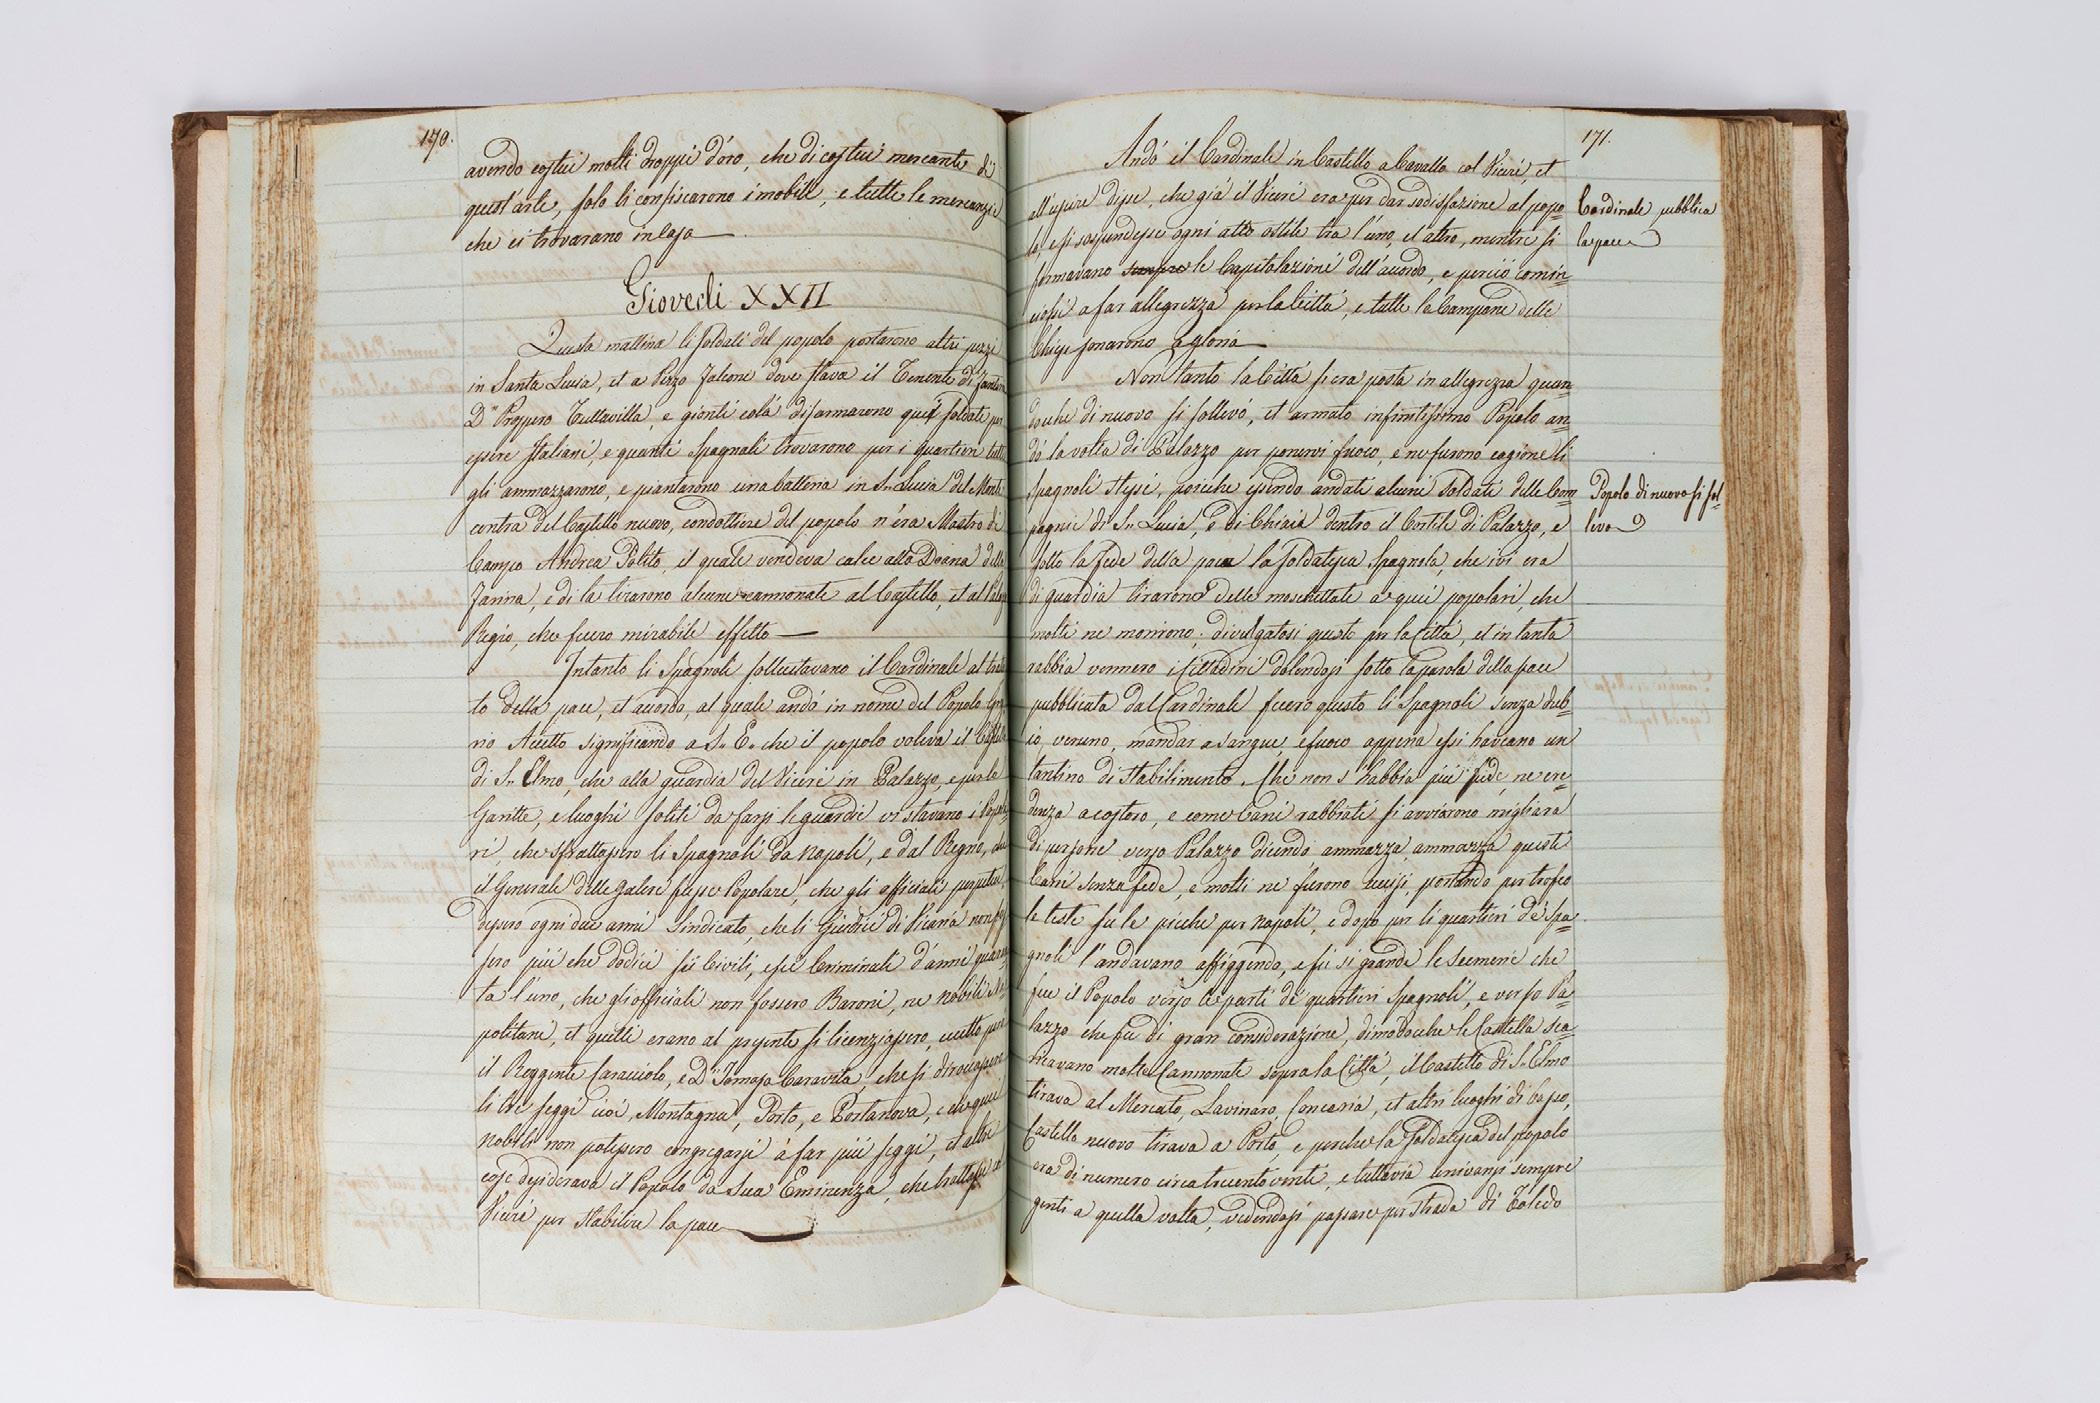 170.
avendo costui molti droppi d'oro, che di costui mercante di
quest'arte, solo li confiscarono i mobili, e tutte le mercanzie
che ci trovarano in casa
Giovedi XXII
Questa mattina li soldati del popolo portarono altri pezzi
in Santa Lucia, et a Pizzo Falcone dove stava il Tenente di
D. Prospero Tuttavilla, e gionti colà disarmarono quei soldati per
essere Italiani, e quanti Spagnoli trovarono per i quartieri tutti
gli ammazzarono, e piantarono una batteria in S. Lucia del Monte
contra del Castello nuovo, condottiere del popolo n'era Mastro di
Campo Andrea Polito, il quale vendeva calce alla Doana della
Farina, e di la tirarono alcune cannonate al Castello, et al Palazzo
Regio, che fecero mirabile effetto
Intanto li Spagnoli sollecitavano il Cardinale al tratta
to della pace, et acordo, al quale andò in nome del Popolo
rio Accetto significando a S. E. che il popolo voleva il Castello
di S. Elmo, che alla guardia del Viceré in Palazzo, e per le
Garitte, e luoghi soliti da farsi le guardie vi stavano i Popola
ri, che sfrattassero li Spagnoli da Napoli, e dal Regno, che
il Generale delle Galere fusse Popolare, che gli officiali perpetui
dessero ogni due anni Sindicato, che li Giudici di Vicaria non fos
sero più che dodici sei Civili, e sei Criminali d'anni quaran
ta l'uno, che gli officiali non fossero Baroni, ne nobili Na
politani, et quelli erano al presente si licenziassero, eccetto però
il Reggente Caracciolo, e D. Tomaso Caravita, che si diroccassero
li tre seggi cioè, Montagna, Porto, e Portanova, e che quei
nobili non potessero congregarsi à far più seggi, et altre
cose desiderava il Popolo da sua Eminenza, che trattasse col
Viceré per stabilire la pace
171.
Andò il Cardinale in Castello a Cavallo col Viceré, et
all'uscire disse, che già il Viceré era per dar sodisfazione al popo=
lo, e si sospendesse ogni atto ostile tra l'uno, et altro, mentre si
formavano le Capitolazioni dell'acordo, e perciò comin=
ciossi a far allegrezza per la Città, e tutte le Campane delle
Chiese sonarono a gloria
Cardinale pubblica
la pace
Non tanto la Città si era posta in allegrezza quan=
do che di nuovo si sollevò, et armato infinitissimo Popolo an=
dò la volta di Palazzo per ponervi fuoco, e ne furono cagione li
Spagnoli stessi, poiche essendo andati alcuni soldati delle Com=
pagnie di S. Lucia, e di Chiaia dentro il Cortile di Palazzo, e
sotto la fede della pace la soldatesca Spagnola, che ivi era
di guardia tirarono delle moschettate a quei popolari, che
molti ne morirono; divulgatosi questo per la Città, et in tanta
rabbia vennero i Cittadini dolendosi sotto la parola della pace
pubblicata dal Cardinale fecero questo li Spagnoli senza dub=
io veruno, mandar a sangue, e fuoco appena essi haveano un
tantino di stabilimento. Che non s'habbia più fede, ne cre=
denza a costoro, e come Cani rabbiati si avviarono migliara
di persone verso Palazzo dicendo ammazza, ammazza questi
Cani senza fede, e molti ne furono uccisi, portando per trofeo
le teste su le picche per Napoli, e dopo per li quartieri de' Spa=
gnoli l'andavano affiggendo, e fù si grande le che
fece il Popolo verso le parti de' quartieri Spagnoli, e verso Pa=
lazzo che fu di gran considerazione, dimodoche le Castella sca=
ricavano molte Cannonate sopra la Città, il Castello di S. Elmo
tirava al Mercato, Lavinaro, Conceria, et altri luoghi di basso,
Castello nuovo tirava a Porto, e perche la Soldatesca del popolo
era di numero circa trecento venti, e tuttavia univansi sempre
genti a quella volta, vedendosi passare per strada di Toledo
Popolo di nuovo si sol=
leva